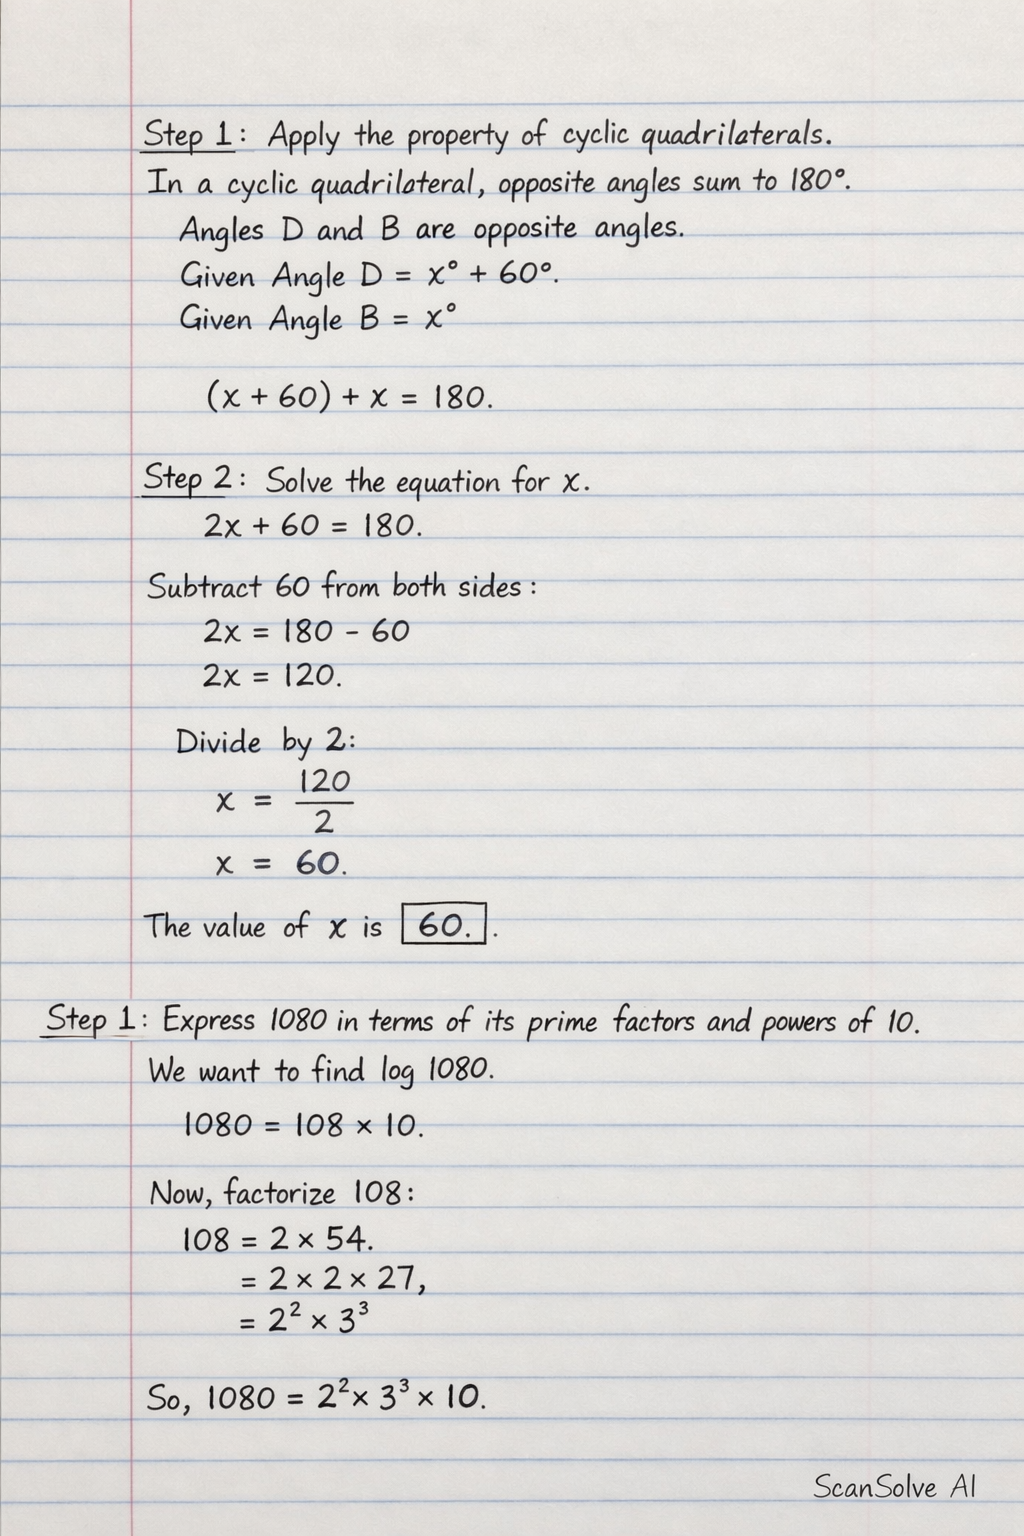 Step 1: Apply the property of cyclic quadrilaterals.
In a cyclic quadrilateral, opposite angles sum to 180°.
Angles D and B are opposite angles.
Given Angle D = x° + 60°.
Given Angle B = x°
(x + 60) + x = 180.
Step 2: Solve the equation for x.
2x + 60 = 180.
Subtract 60 from both sides:
2x = 180 - 60
2x = 120.
Divide by 2:
x = 120/2
x = 60.
The value of x is 60. .
Step 1: Express 1080 in terms of its prime factors and powers of 10.
We want to find log 1080.
1080 = 108 × 10.
Now, factorize 108:
108 = 2 × 54.
= 2 × 2 × 27,
= 2² × 3³
So, 1080 = 2² × 3³ × 10.
ScanSolve AI